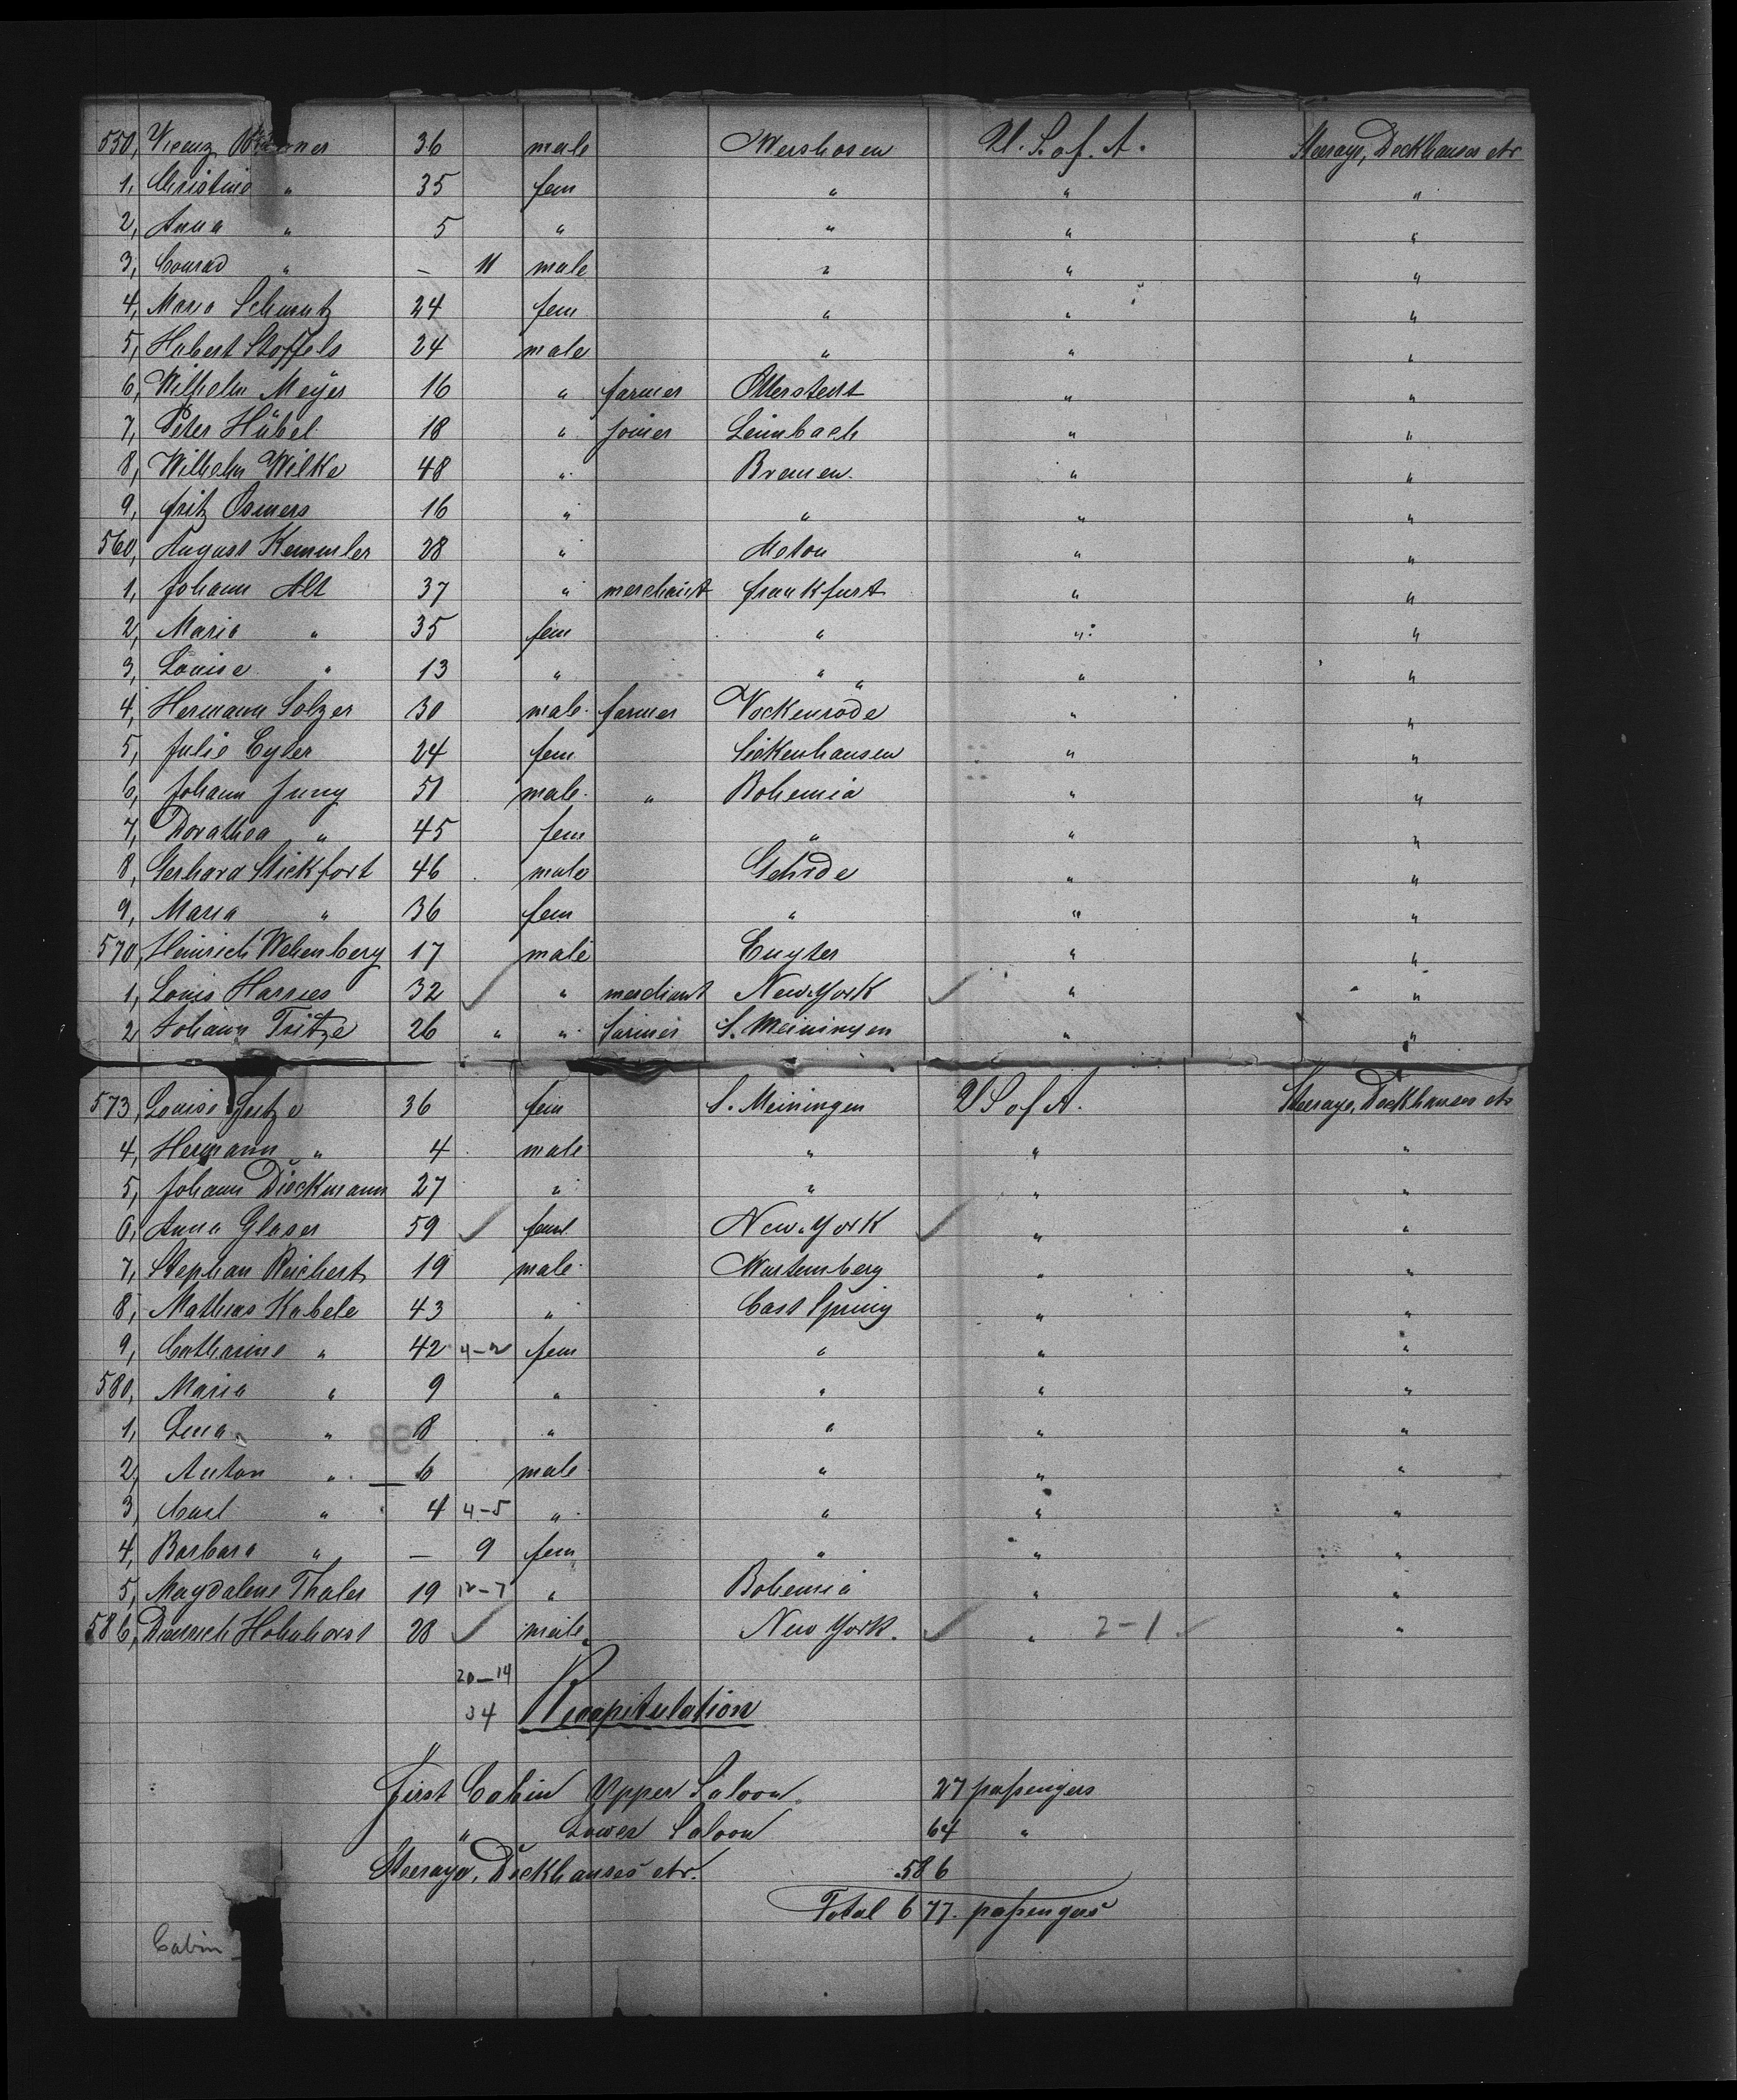 550, 36 male Mershosen U. S. of. A. Steerage, Deckhouses etc
1, Christine " 35 fem " " "
2, Anna " 5 " " " "
3, Conrad " — 11 male " " "
4, Maria Schmutz 24 fem " " "
5, Hubert Stoffels 24 male " " "
6, Wilhelm Meÿer 16 " farmer Otterstedt " "
7, Peter Hübel 18 " joiner Leimbach " "
8, Wilhelm Wilke 48 " Bremen. " "
9, Fritz Osmers 16 " " " "
560, August Kemmler 28 " " "
1, Johann Alt 37 " merchant Frankfurt " "
2, Maria " 35 fem " " "
3, Louise " 13 " " " "
4, Hermann Solzer 30 male farmer Vockenrode " "
5, Julie Eyler 24 fem Sickenhausen " "
6, Johann Jung 51 male " Bohemia " "
7, Dorathea " 45 fem " " "
8, Gerhard Stickfort 46 male Gehrde " "
9, Maria " 36 fem " " "
570, Heinrich Wehenberg 17 male Engter " "
1, Louis Harries 32 ✓ " merchant New York ✓ " "
2, Johann Fritze 26 " " farmer S. Meiningen " "
573, Louise Fritze 36 fem S. Meiningen U S of A. Steerage, Deckhouses etc
4, Hermann " 4 male " " "
5, Johann Dieckmann 27 " " " "
6, Anna Glaser 59 ✓ fem New York ✓ " "
7, Stephan Reichert 19 male Wurtemberg " "
8, Mathias Kabele 43 " " "
9, Catharine " 42 4-2 fem " " "
580, Maria " 9 " " " "
1, Lena " 8 " " " "
2, Anton " 6 male " " "
3, Carl " 4 4-5 " " " "
4, Barbara " — 9 fem " " "
5, Magdalene Thaler 19 12-7 " Bohemia " "
586, Diedrich Hohnhorst 28 ✓ male New York. ✓ " 2-1 ✓ "
20-14
34 Recapitulation
First Cabin Upper Saloon. 27 passengers
" Lower Saloon 64 "
Steerage, Deckhouses etc. 586
Total 677. passengers
Cabin